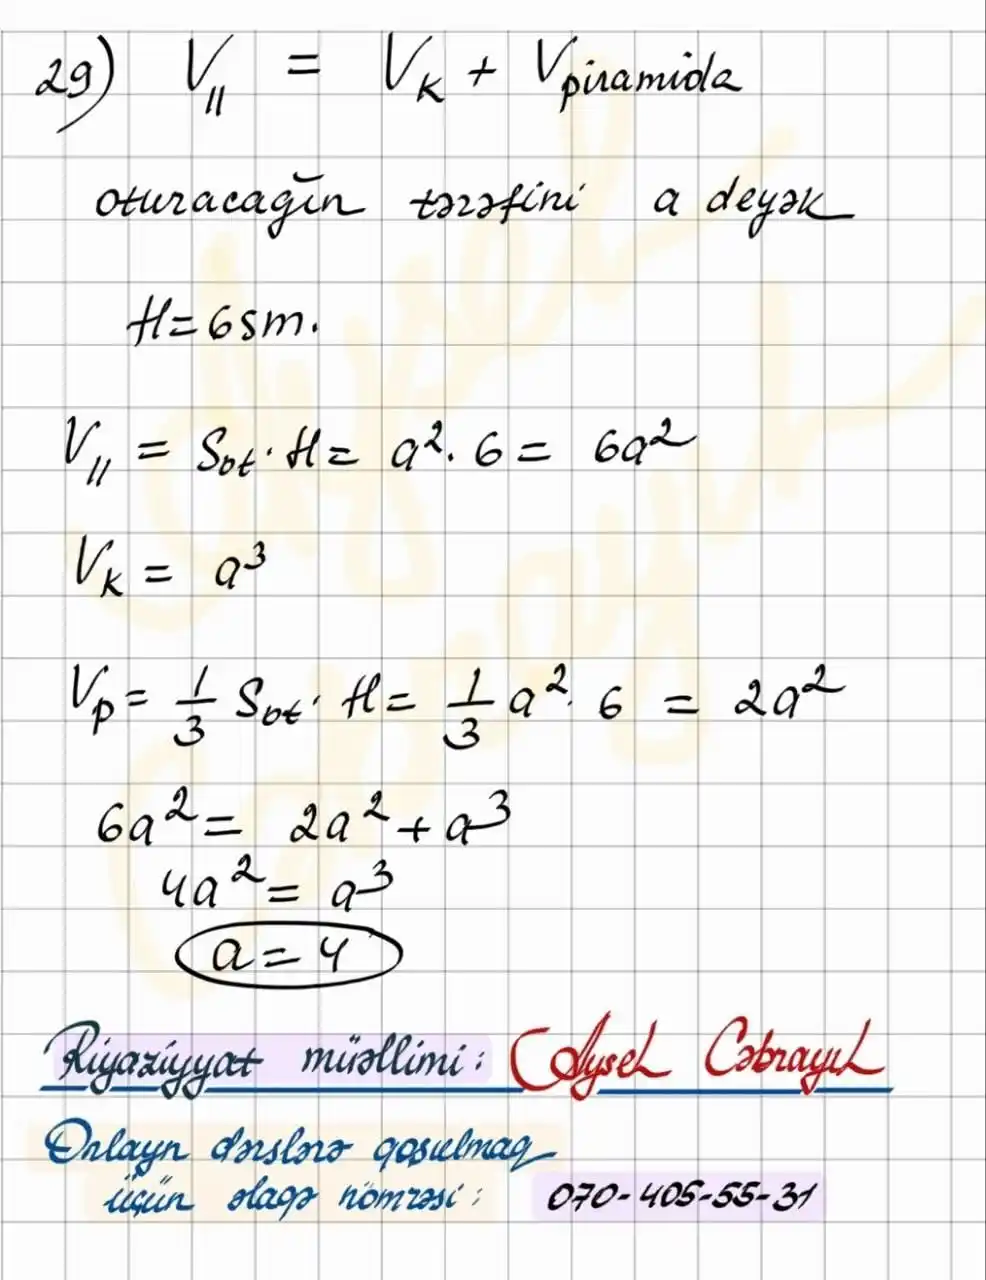 29) V₁₁ = Vₖ + Vpiramida
oturacağın tərəfini a deyək
H=6sm.
V₁₁ = Sₒₜ · H = a² · 6 = 6a²
Vₖ = a³
Vₚ = 1/3 Sₒₜ · H = 1/3 a² · 6 = 2a²
6a² = 2a² + a³
4a² = a³
a = 4
Riyaziyyat müəllimi: Aysel Cəbrayıl
Onlayn dərslərə qoşulmaq
üçün əlaqə nömrəsi: 070-405-55-31